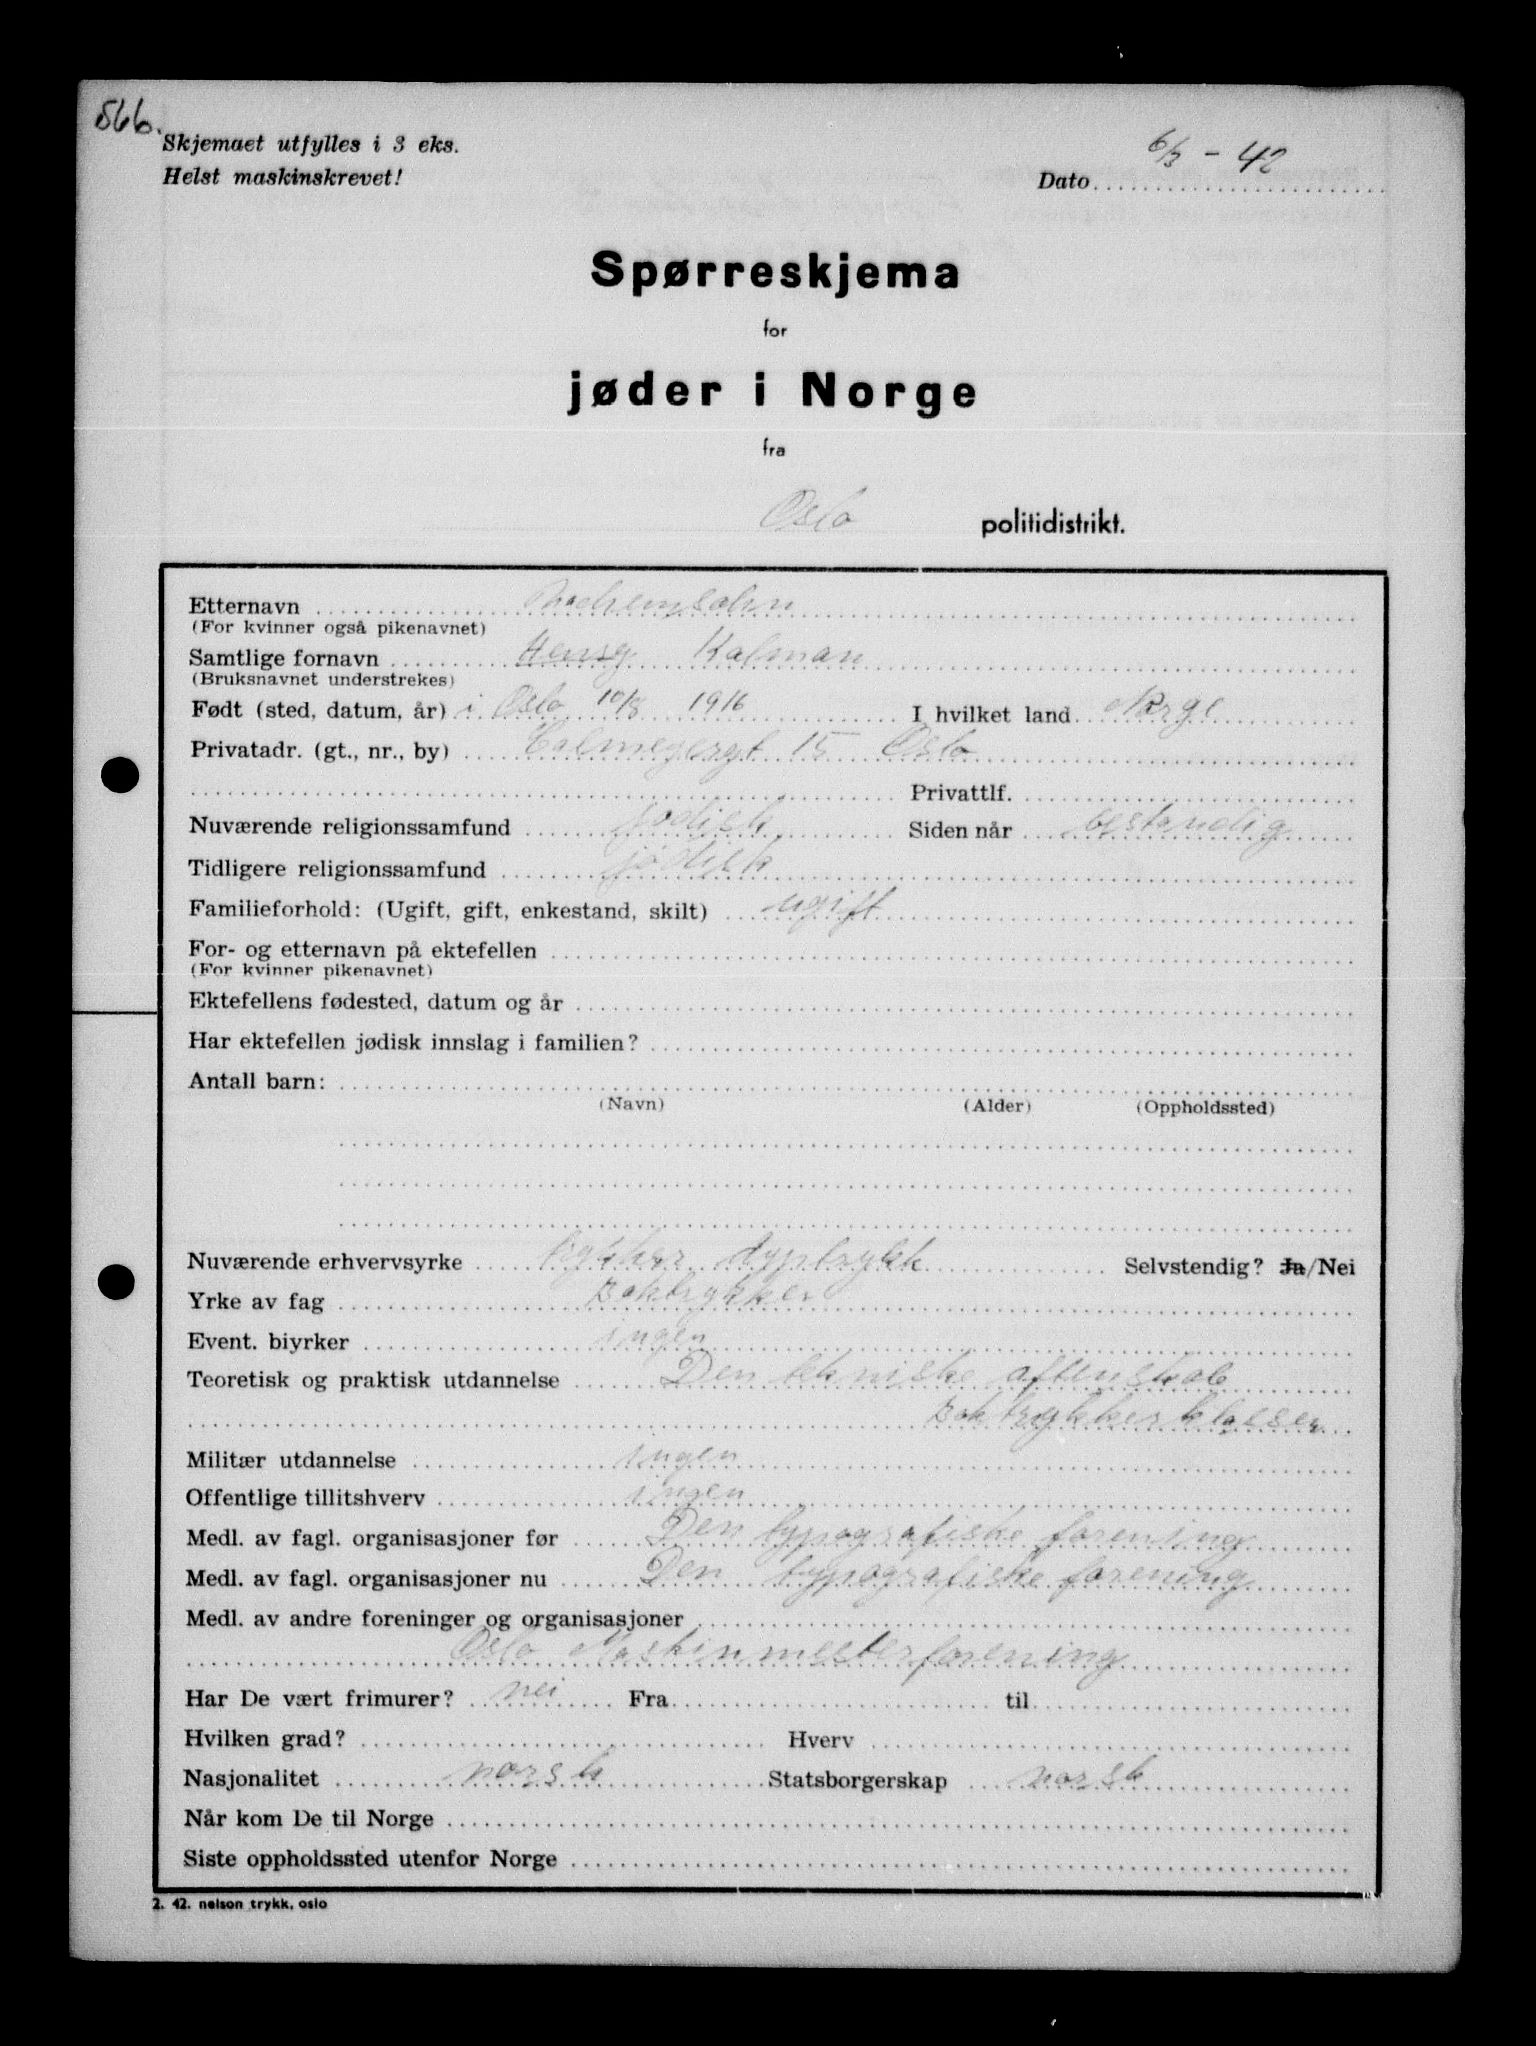 566.
Skjemaet utfylles i 3 eks.
Helst maskinskrevet!
Dato 6/3 - 42
Spørreskjema
for
jøder i Norge
fra
Oslo politidistrikt.
Etternavn
(For kvinner også pikenavnet)
Samtlige fornavn Henry Kalman
(Bruksnavnet understrekes)
Født (sted, datum, år) i Oslo 10/8 1916 I hvilket land Norge
Privatadr. (gt., nr., by) Calmeyergt 15 Oslo
Privattlf.
Nuværende religionssamfund jødisk Siden når bestandig
Tidligere religionssamfund jødisk
Familieforhold: (Ugift, gift, enkestand, skilt) ugift
For- og etternavn på ektefellen
(For kvinner pikenavnet)
Ektefellens fødested, datum og år
Har ektefellen jødisk innslag i familien?
Antall barn:
(Navn) (Alder) (Oppholdssted)
Nuværende erhvervsyrke dyptrykk Selvstendig? Ja/Nei
Yrke av fag Boktrykker
Event. biyrker ingen
Teoretisk og praktisk utdannelse Den tekniske aftenskole
Boktrykkerklassen
Militær utdannelse ingen
Offentlige tillitshverv ingen
Medl. av fagl. organisasjoner før Den typografiske forening
Medl. av fagl. organisasjoner nu Den typografiske forening
Medl. av andre foreninger og organisasjoner
Oslo Maskinmesterforening
Har De vært frimurer? nei Fra til
Hvilken grad? Hverv
Nasjonalitet norsk Statsborgerskap norsk
Når kom De til Norge
Siste oppholdssted utenfor Norge
2. 42. nelson trykk, oslo